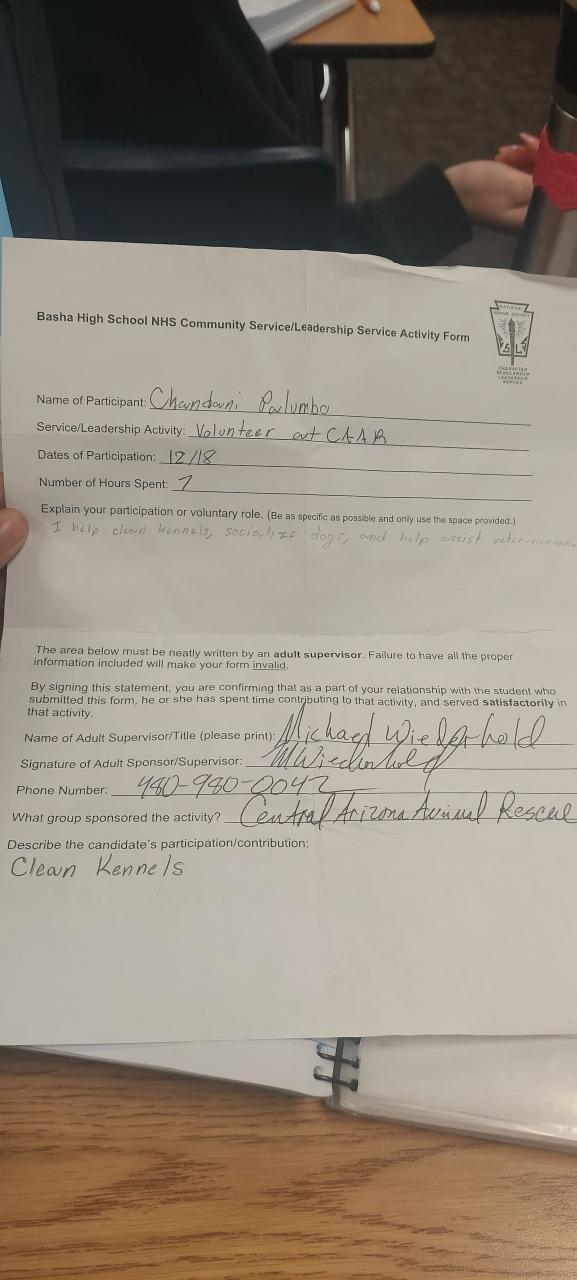 Basha High School NHS Community Service/Leadership Service Activity Form
NATIONAL
HONOR SOCIETY
S L
CHARACTER
SCHOLARSHIP
LEADERSHIP
SERVICE
Name of Participant: Chandani Palumbo
Service/Leadership Activity: Volunteer at CAAR
Dates of Participation: 12/18
Number of Hours Spent: 7
Explain your participation or voluntary role. (Be as specific as possible and only use the space provided.)
I help clean kennels, socialize dogs, and help assist veterinarian.
The area below must be neatly written by an adult supervisor. Failure to have all the proper
information included will make your form invalid.
By signing this statement, you are confirming that as a part of your relationship with the student who
submitted this form, he or she has spent time contributing to that activity, and served satisfactorily in
that activity.
Name of Adult Supervisor/Title (please print): Michael Wiederhold
Signature of Adult Sponsor/Supervisor: MWiederhold
Phone Number: 480-980-0042
What group sponsored the activity? Central Arizona Animal Rescue
Describe the candidate's participation/contribution:
Clean Kennels